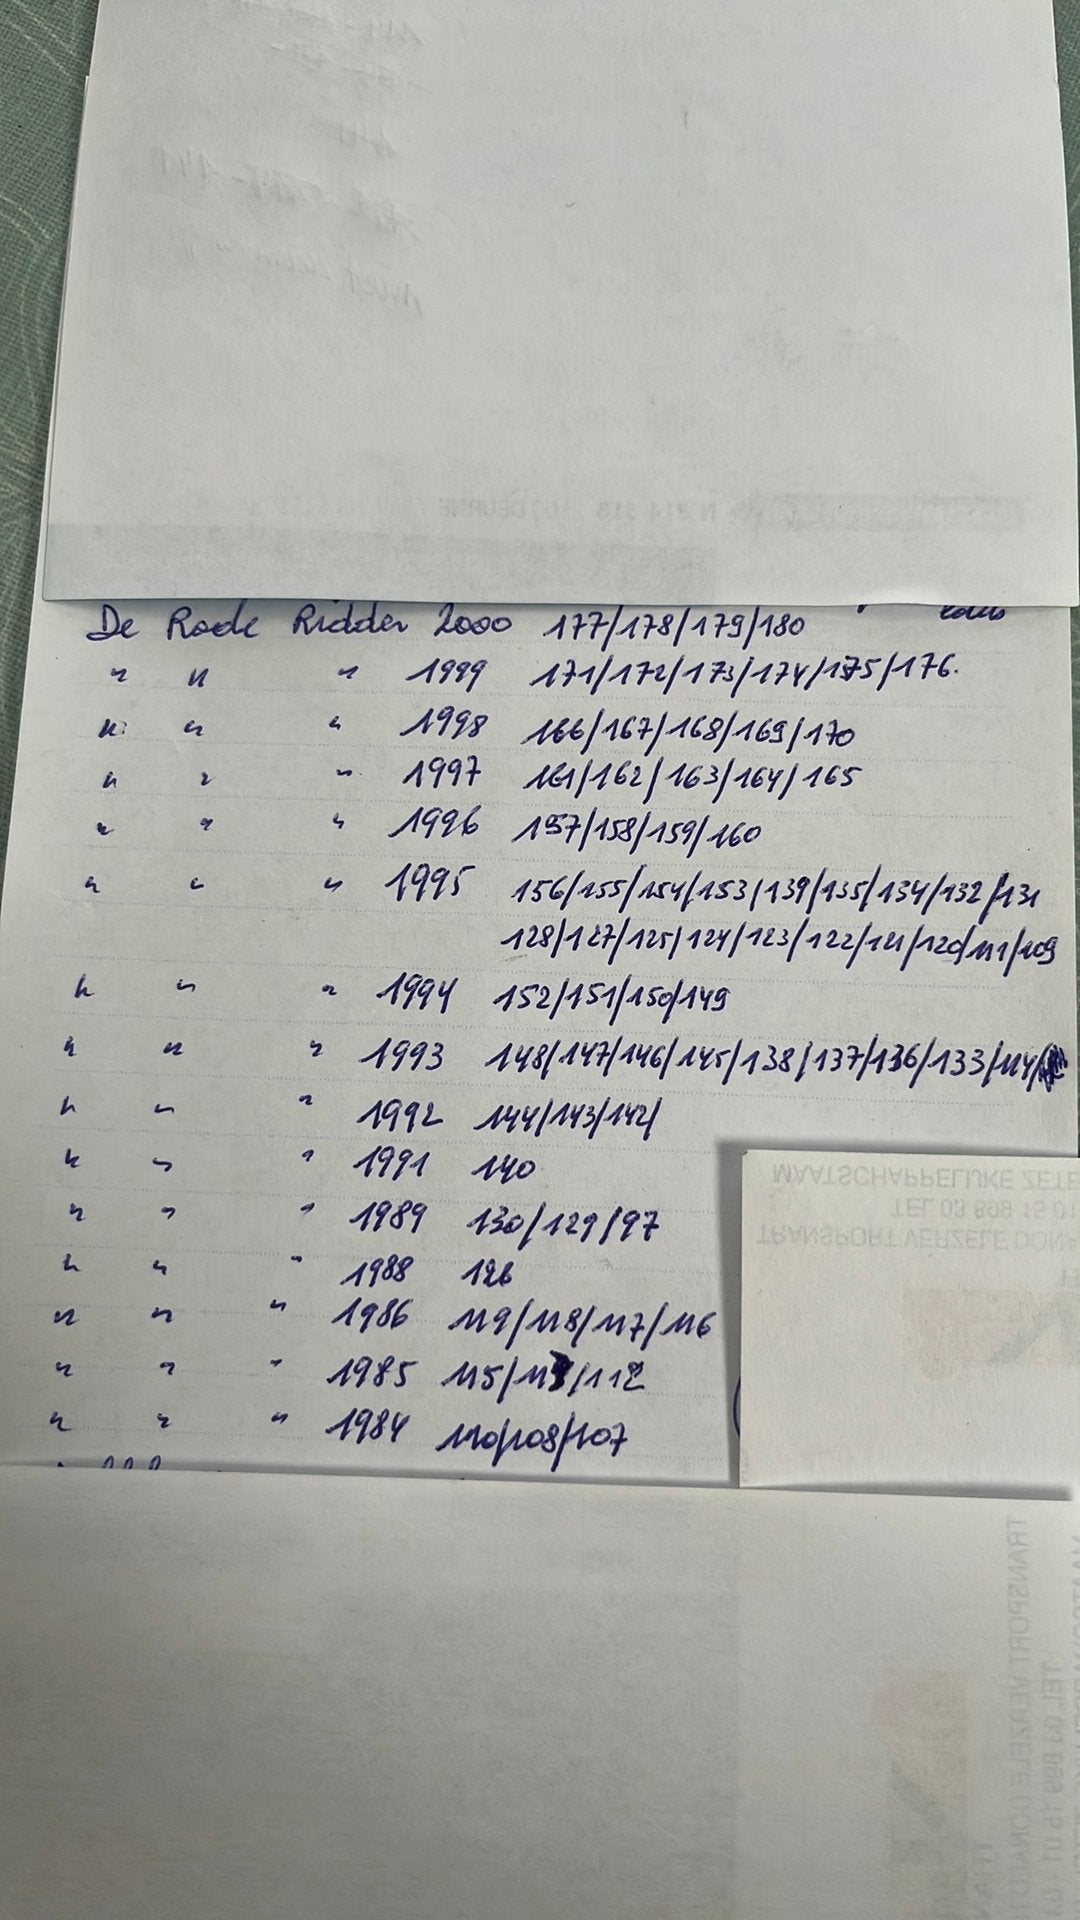 De Rode Ridder 2000 177/178/179/180
" " " 1999 171/172/173/174/175/176.
" " " 1998 166/167/168/169/170
" " " 1997 161/162/163/164/165
" " " 1996 157/158/159/160
" " " 1995 156/155/154/153/139/135/134/132/131
128/127/125/124/123/122/121/120/111/109
" " " 1994 152/151/150/149
" " " 1993 148/147/146/145/138/137/136/133/114/
" " " 1992 144/143/142/
" " " 1991 140
" " " 1989 130/129/97
" " " 1988 126
" " " 1986 119/118/117/116
" " " 1985 115/113/112
" " " 1984 110/108/107
MAATSCHAPPELIJKE ZETE
TEL 03 899 15 01
TRANSPORT VERZELE DONA